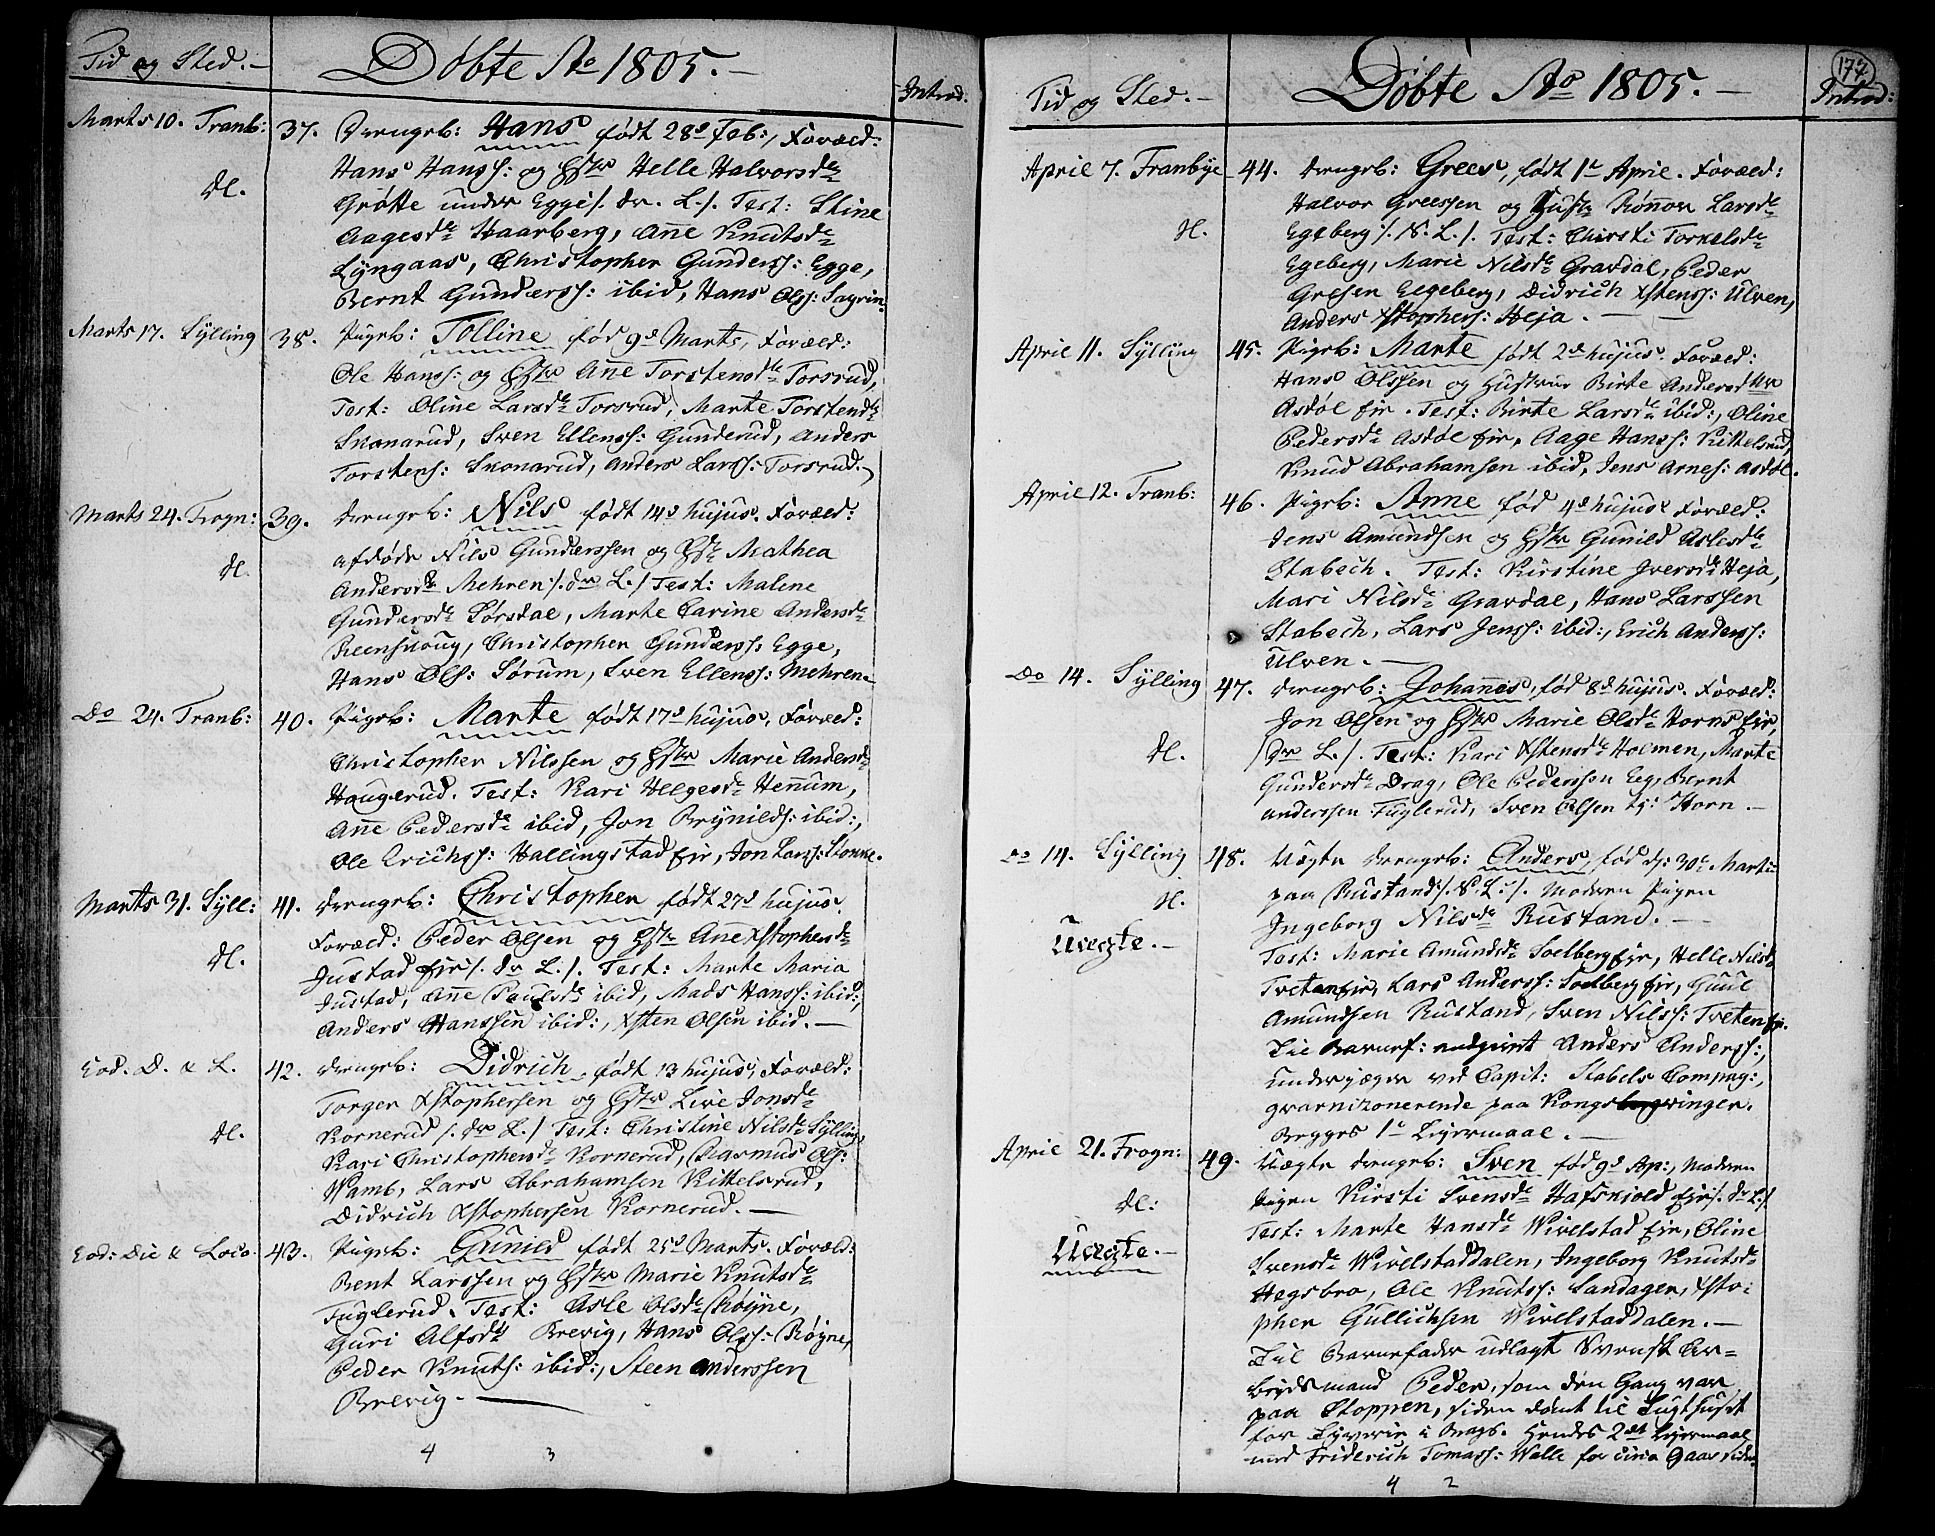 Tid og Sted. -
Döbte Ao 1805. -
Introd.
Marts 10. Tranb:
37. Drengeb: Hans født 28d Feb:, Foræld:
Hans Hanss: og Hstr Helle Halvorsdr
dl.
Grøtte under Egge /. dr. L./. Test: Stine
Aagesdr Haarberg, Anne Knutsdr
Lyngaas, Christopher Gunderss: Egge,
Bernt Gunderss: ibid, Hans Olss: Sagrin.
Marts 17. Sylling
38. Pigeb: Tolline fød 9d Marts, Foræld:
Ole Hanss: og Hstr Ane Torstensdr Torsrud,
Test: Oline Larsdr Torsrud, Marte Torstendr
Skonarud, Sven Ellenss: Gunderud, Anders
Torstens: Skonarud, Anders Larss: Torsrud.
Marts 24. Frogn:
39. Drengeb: Nils født 14d hujus. Foræld:
afdøde Nils Gunderssen og Hstr Mathea
dl.
Andersdr Mehren /. dr L./ Test: Malene
Gundersdr Sørsdal, Marte Carine Andersdr
Reenskoug, Christopher Gunderss: Egge,
Hans Ols: Sørum, Sven Ellenss: Mehren.
Do 24. Tranb:
40. Pigeb: Marte født 17d hujus, Foræld:
Christopher Nilssen og Hstr Marie Andersdr
Haugerud. Test: Kari Helgesdr Henum,
Anne Pedersdr ibid, Jon Brynilds: ibid:,
Ole Erichss: Hallingstad fir, Jon Larss: Stokke.
Marts 31. Syll:
41. Drengeb: Christopher født 27d hujus.
Foræld: Peder Olsen og Hstr Ane Xstophersdr
dl.
Justad fir /. dr L./. Test: Marte Maria
Justad, Anne Paulsdr ibid, Mads Hanss: ibid:,
Anders Hanssen ibid:, Xsten Olsen ibid. -
Eod: D. & L.
42. Drengeb: Didrich født 13 hujus, Foræld:
Torger Xstophersen og Hstr Live Jonsdr
dl.
Kornerud /. dr L./ Test: Christine Nilsdr Sylling,
Kari Christophersdr Kornerud, Rasmus Ols:
Wamb, Lars Abrahamsen Kittelsrud,
Didrich Xstophersen Kornerud. -
Eod: Die & Loco.
43. Pigeb: Gunild født 25d Marts. Foræld:
Bent Larssen og Hstr Marie Knutsdr
Fuglerud. Test: Asle Olsdr Røyne,
Guri Alfsdr Brevig, Hans Olss: Røyne,
Peder Knuts: ibid:, Steen Anderssen
Brevig. -
4 3
177
Tid og Sted. -
Döbte Ao 1805. -
Introd:
April 7. Tranbye
44. Drengeb: Grees, født 1e April. Foræld:
Halvor Greessen og Hustr Rønnov Larsdr
dl.
Egeberg /. N. L./. Test: Chirsti Torkelsdr
Egeberg, Marie Nilsdr Gravdal, Peder
Gresen Eegeberg, Didrich Xstenss: Ulven,
Anders Xstophers: Heja. -
April 11. Sylling
45. Pigeb: Marte født 2d hujus. Foræld:
Hans Olssen og Hustrue Birte Andersdtr
Asdøl fir. Test: Birte Larsdr ibid:, Oline
Pedersdr Asdøl fir, Aage Hanss: Kittelsrud,
Knud Abrahamsen ibid, Jens Arnes: Asdøl.
April 12. Tranb:
46. Pigeb: Anne fød 4d hujus. Foræld:
Jens Amundsen og Hstr Gunild Aslesdr
Stabech. Test: Kirstine Iversdr Heja,
Mari Nilsdr Gravdal, Hans Larssen
Stabech, Lars Jenss: ibid:, Erich Anderss:
Ulven. -
Do 14. Sylling
47. Drengeb: Johannes, fød 8d hujus. Foræld:
Jon Olsen og Hstr Marie Olsdr Horns fir,
dl.
/dr L./. Test: Kari Xstensdr Holmen, Marte
Gundersdr Drag, Ole Pederssen Eeg, Bernt
Anderssen Fuglerud, Sven Olsen tj: Horn. -
Do 14. Sylling
48. Uægte Drengeb: Anders, fød d: 30e Marti
dl.
paa Rustand /. N. L./. Moderen Pigen
Uægte. -
Ingeborg Nilsdr Rustand. -
Test: Marie Amundsdr Soelberg fir, Helle Nilsdr
Tveten fir, Lars Anderss: Soelberg fir, Guul
Amundsen Rustand, Sven Nilss: Tveten fir.
Til Barnef: Anders Anderss:,
Underjæger ved Capit: Stabels Compag:,
gvarnizonerende paa Kongsvinger.
Begges 1e Lejermaal. -
April 21. Frogn:
49. Uægte Drengeb: Sven fød 9d Ap:, Moderen
Pigen Kirsti Svensdr Hafskjold fir /. dr L./
dl:
Test: Marte Hansdr Wivelstad fir, Oline
Uægte. -
Svensdr Wivelstaddalen, Ingeborg Knutsdr
Hegsbro, Ole Knutss: Landagen, Xsto-
pher Gullichsen Wivelstaddalen. -
Til Barnefader udlagt Svensk Ar-
beydsmand Peder, som den Gang var
paa Stoppen, siden dømt til Tugthuset
for Tyverie i Brags. Hendes 2det Lejermaal
med Friderich Tomass: Walle for circa 9 aar siden.
4 2